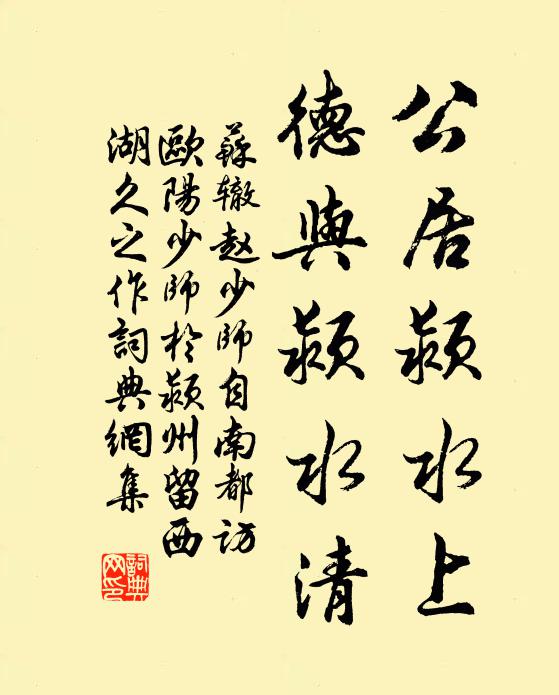 公居潁水上
德與潁水清
蘇辙赵少师自南都访
歐陽少师於潁州留西
湖久之作詞典網集
詞典網印